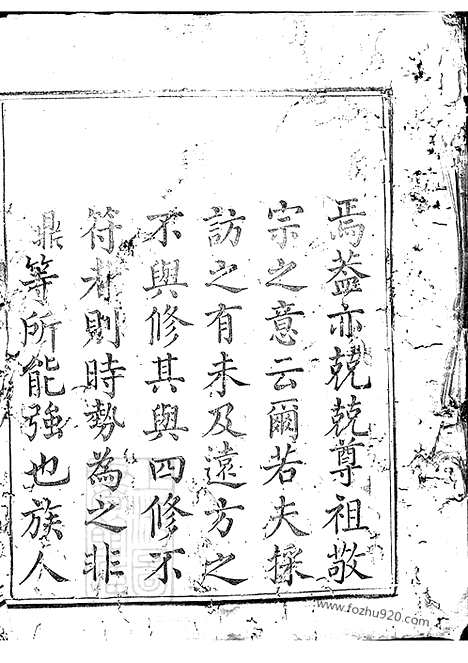 焉葢亦兢兢尊祖敬
宗之意云爾若夫採
訪之有未及遠方之
不與修其與四修不
符者則時勢為之非
鼎等所能強也族人
www.fozhu920.com